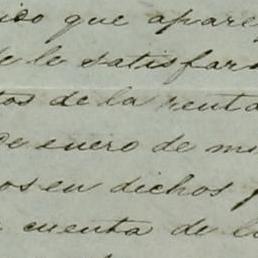 ido que apare
de le satisfar
tos de la renta
de enero de mi
os en dichos
cuenta de la